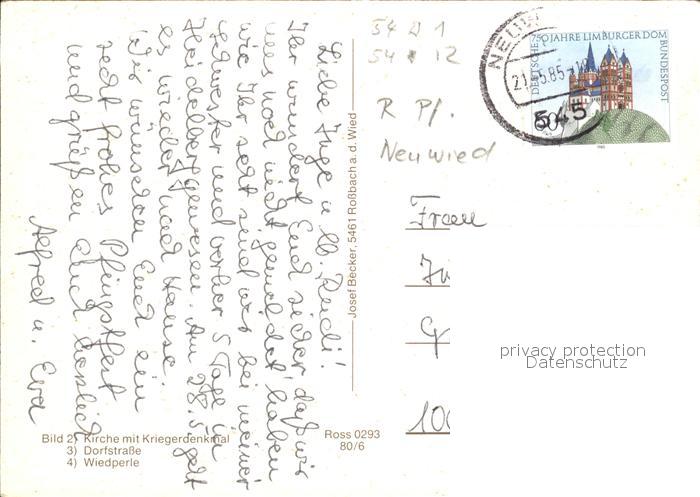 Liebe Inge u lb. Rudi!
Ihr wundert Euch sicher daß wir
uns noch nicht gemeldet haben
wie Ihr seht sind wir bei meiner
Schwester und vorher 5 Tage in
Heidelberg gewesen. Am 28.5. geht
es wieder nach Hause
Wir wünschen Euch ein
recht frohes Pfingstfest
und grüßen Euch herzlich
Alfred u. Eva
Bild 2) Kirche mit Kriegerdenkmal
3) Dorfstraße
4) Wiedperle
Josef Becker, 5461 Roßbach a. d. Wied
Ross 0293
80/6
54 12
R Pf.
Neuwied
750 JAHRE LIMBURGER DOM
DEUTSCHE
BUNDESPOST
60
545
Frau
10
privacy protection
Datenschutz